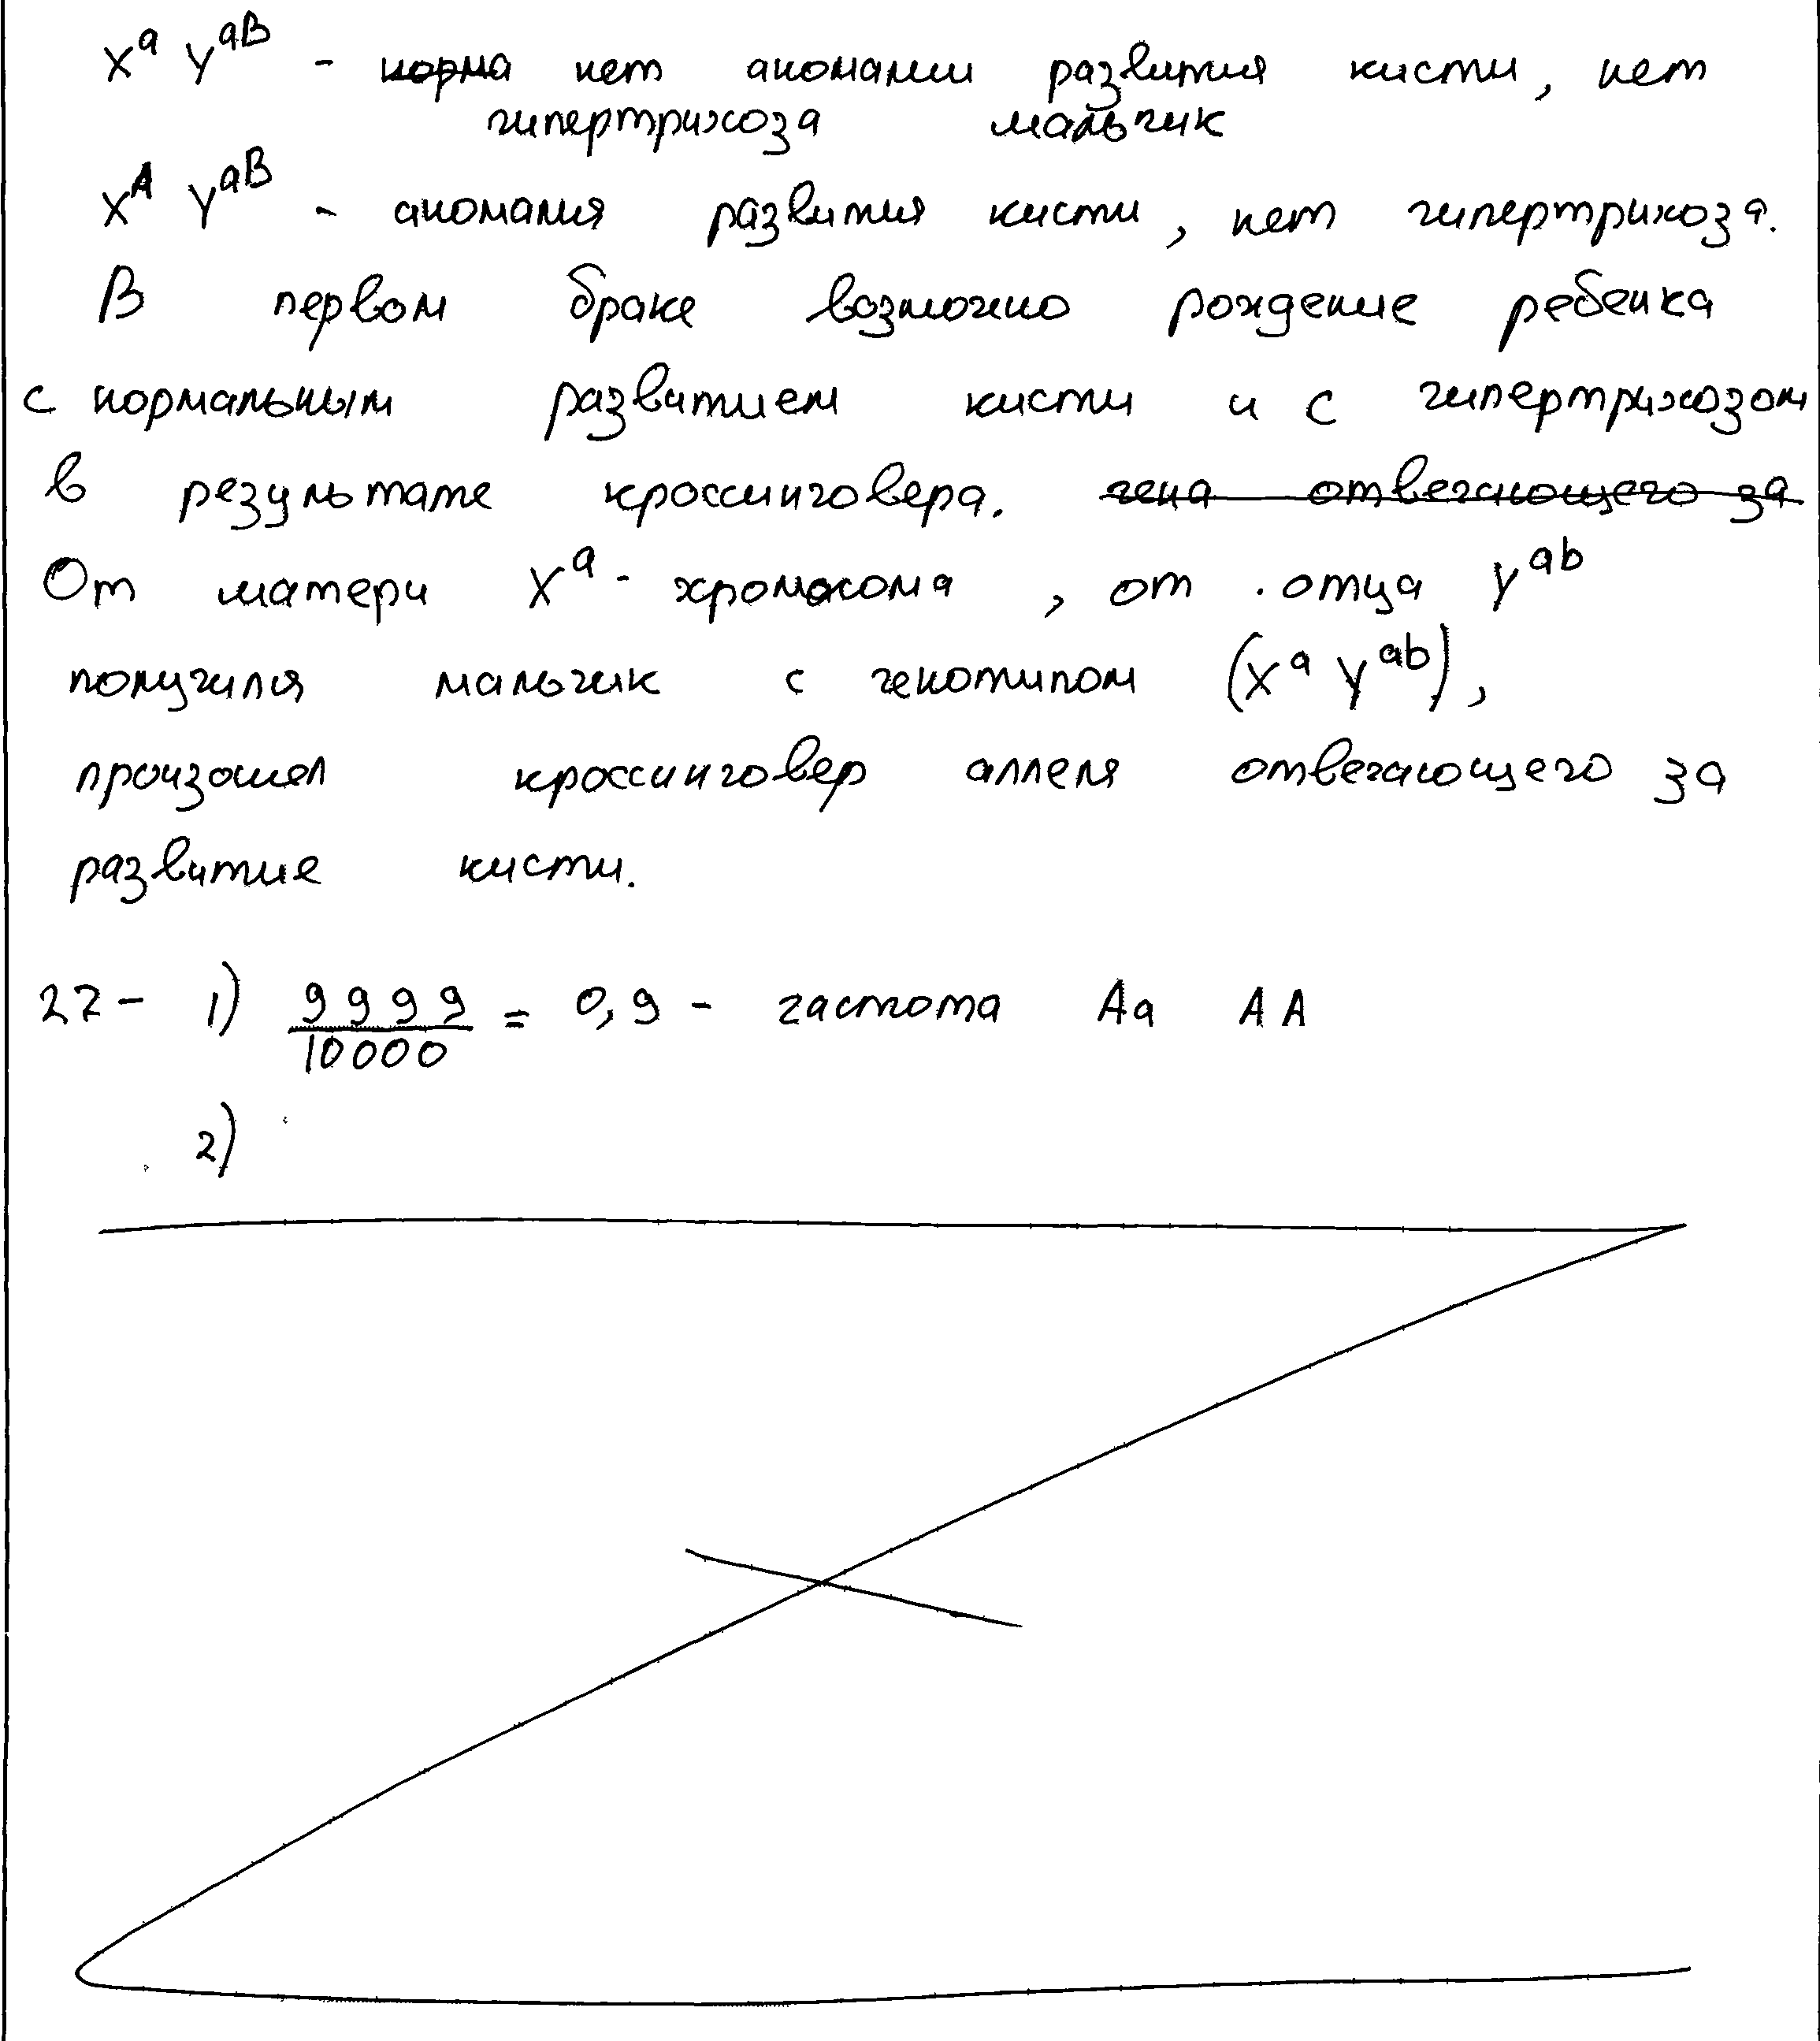 Xᵃ Yᵃᴮ - норма нет аномалии развития кисти, нет
гипертрихоза мальчик
Xᴬ Yᵃᴮ - аномалия развития кисти, нет гипертрихоза.
В первом браке возможно рождение ребенка
с нормальным развитием кисти и с гипертрихозом
в результате кроссинговера. гена отвечающего за
От матери Xᵃ - хромосома, от отца Yᵃᵇ
получился мальчик с генотипом (Xᵃ Yᵃᵇ),
произошел кроссинговер аллеля отвечающего за
развитие кисти.
27 - 1) 9999/10000 = 0,9 - частота Aa AA
2)